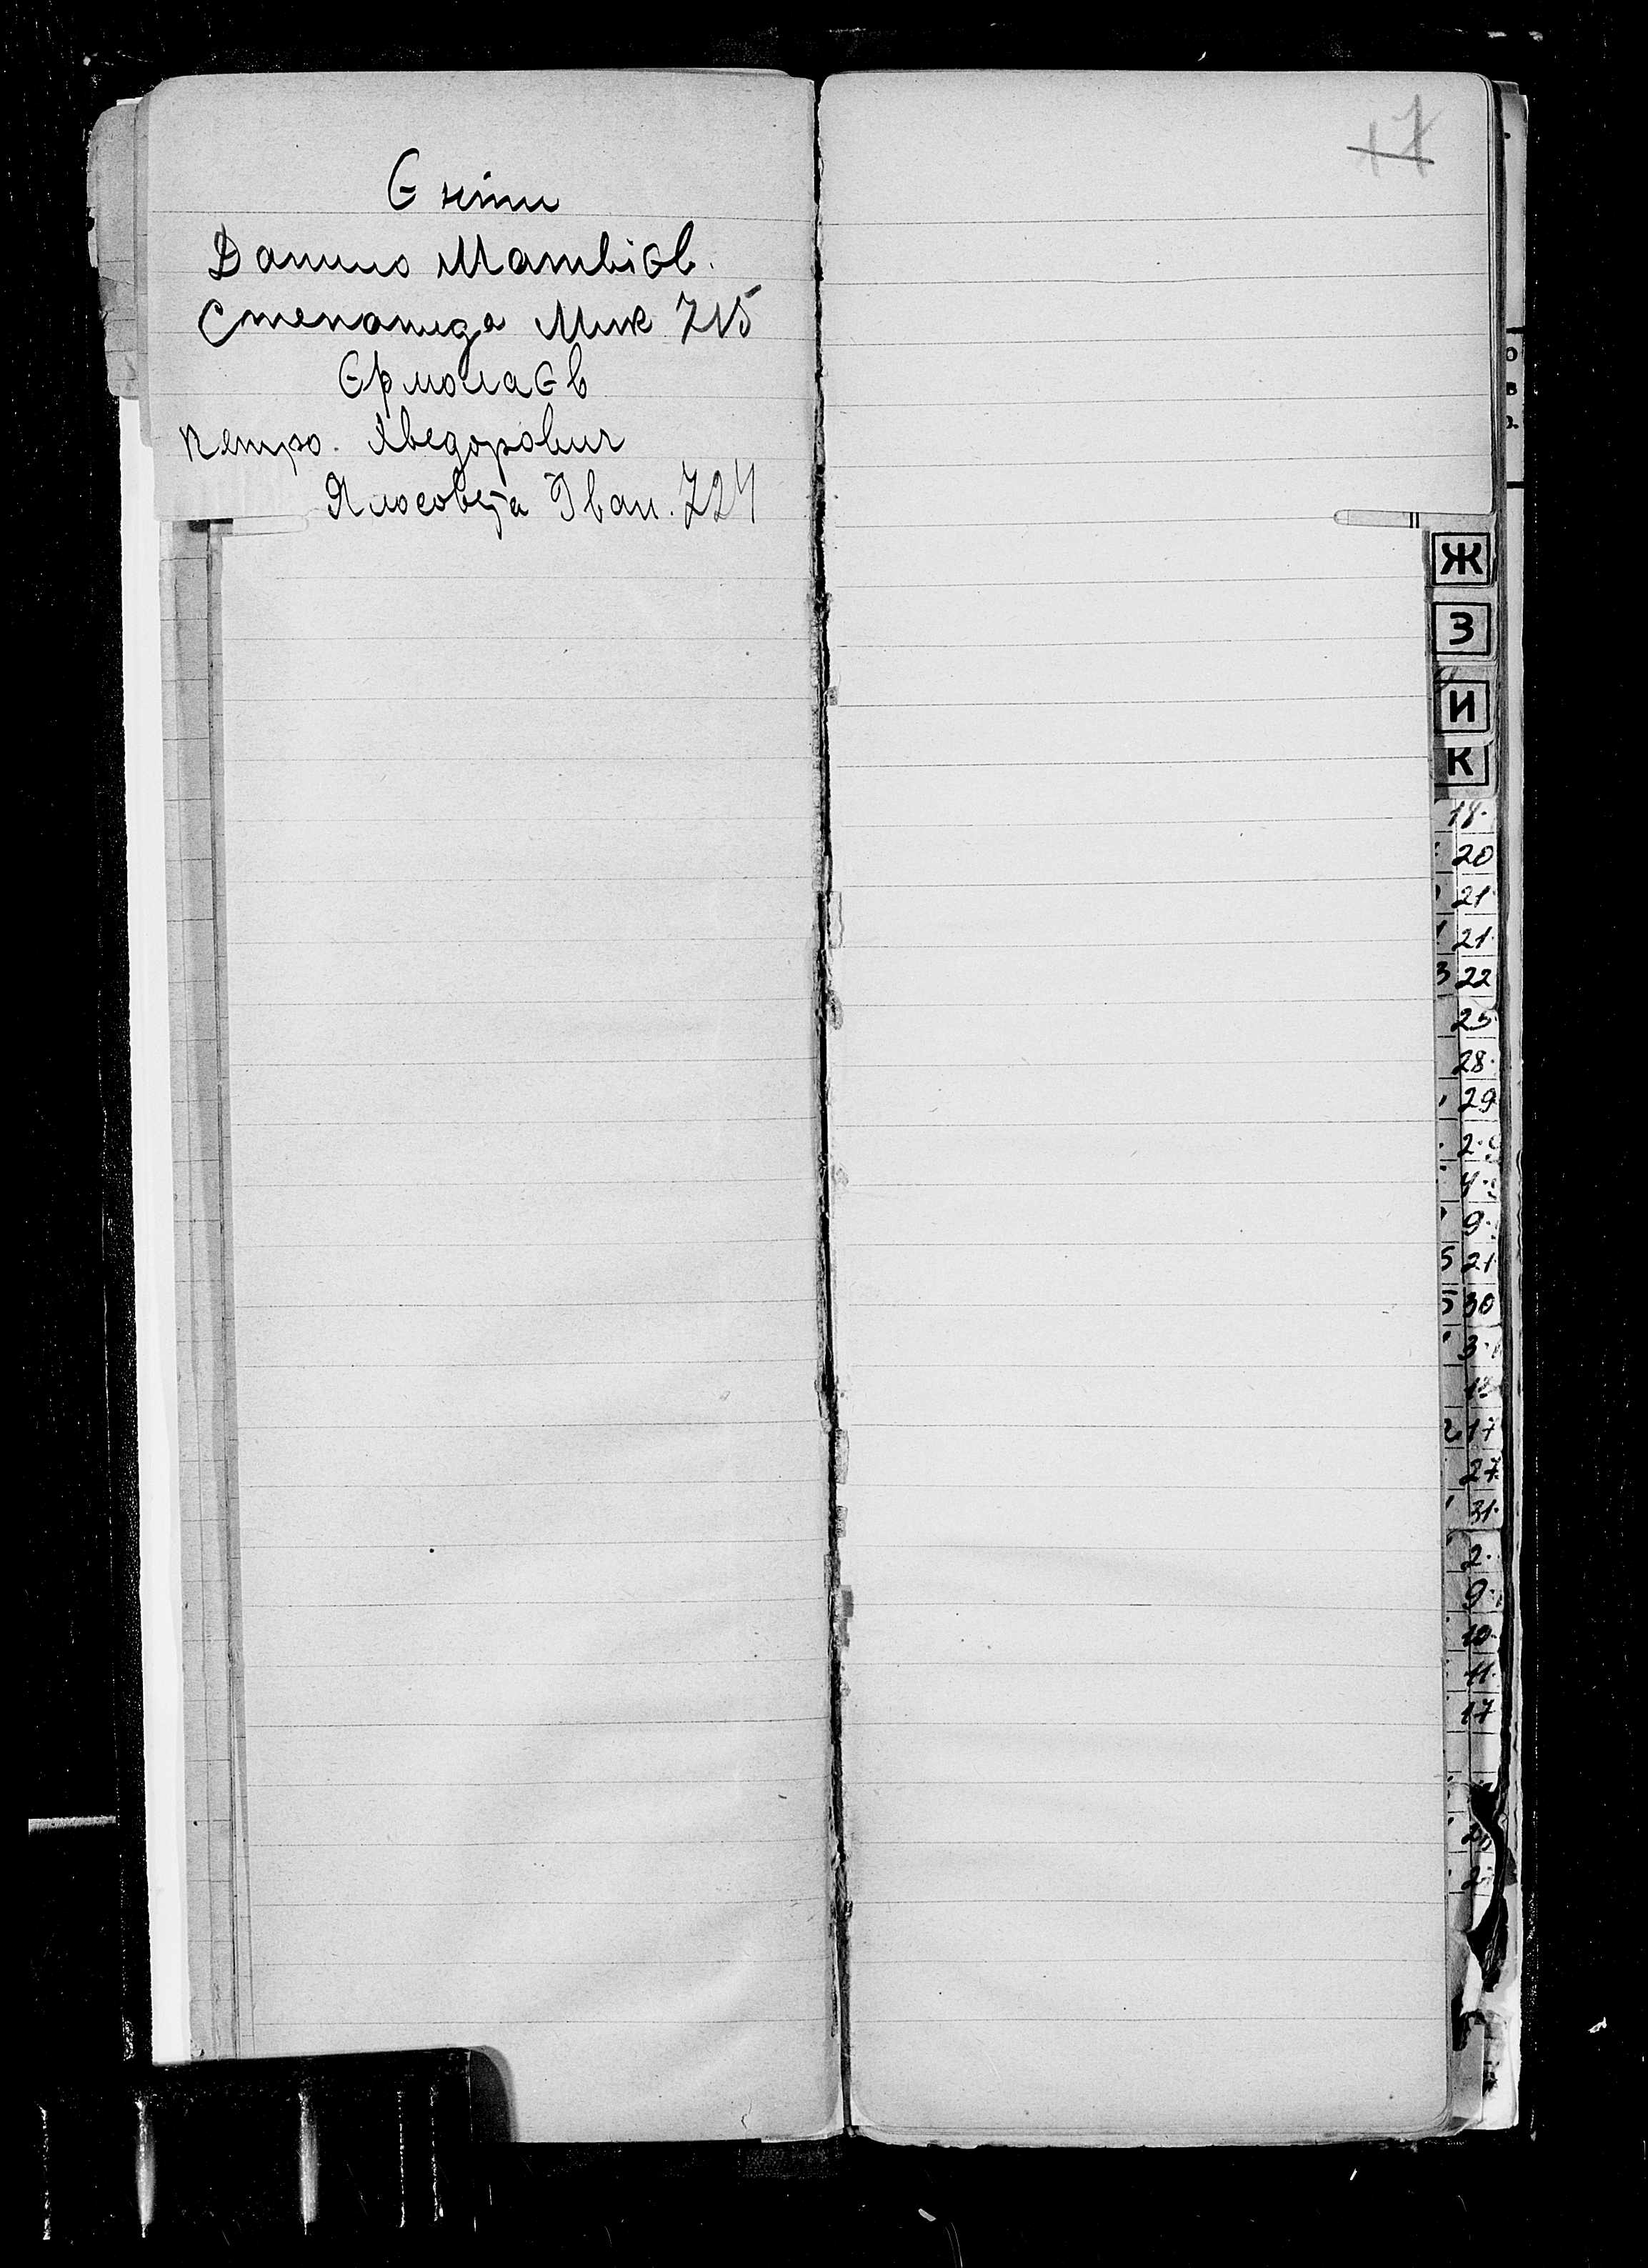 Єніти
Данило Матвієв.
Степанида Мик 715
Єрмолаєв
петро. Хведорович
Ялосовета Іван. 724
17
Ж
З
И
К
18.
20
21
21.
3 22
25
28.
29
2.
4.
9.
5 21
5 30
3.
17
27
31.
2.
9.
10.
11.
17